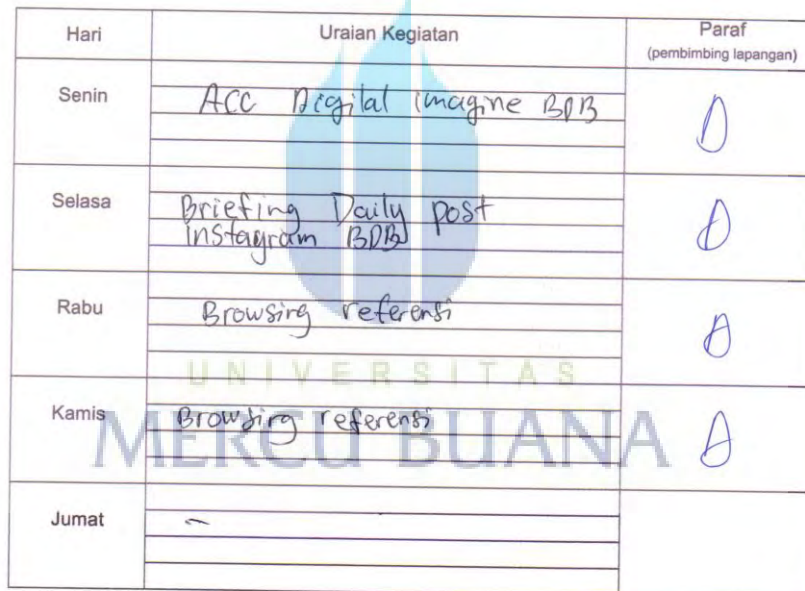 Hari Uraian Kegiatan Paraf
(pembimbing lapangan)
Senin ACC Digital imagine BDB
Selasa Briefing Daily post
instagram BDB
Rabu Browsing referensi
UNIVERSITAS
Kamis Browsing referensi
MERCU BUANA
Jumat -